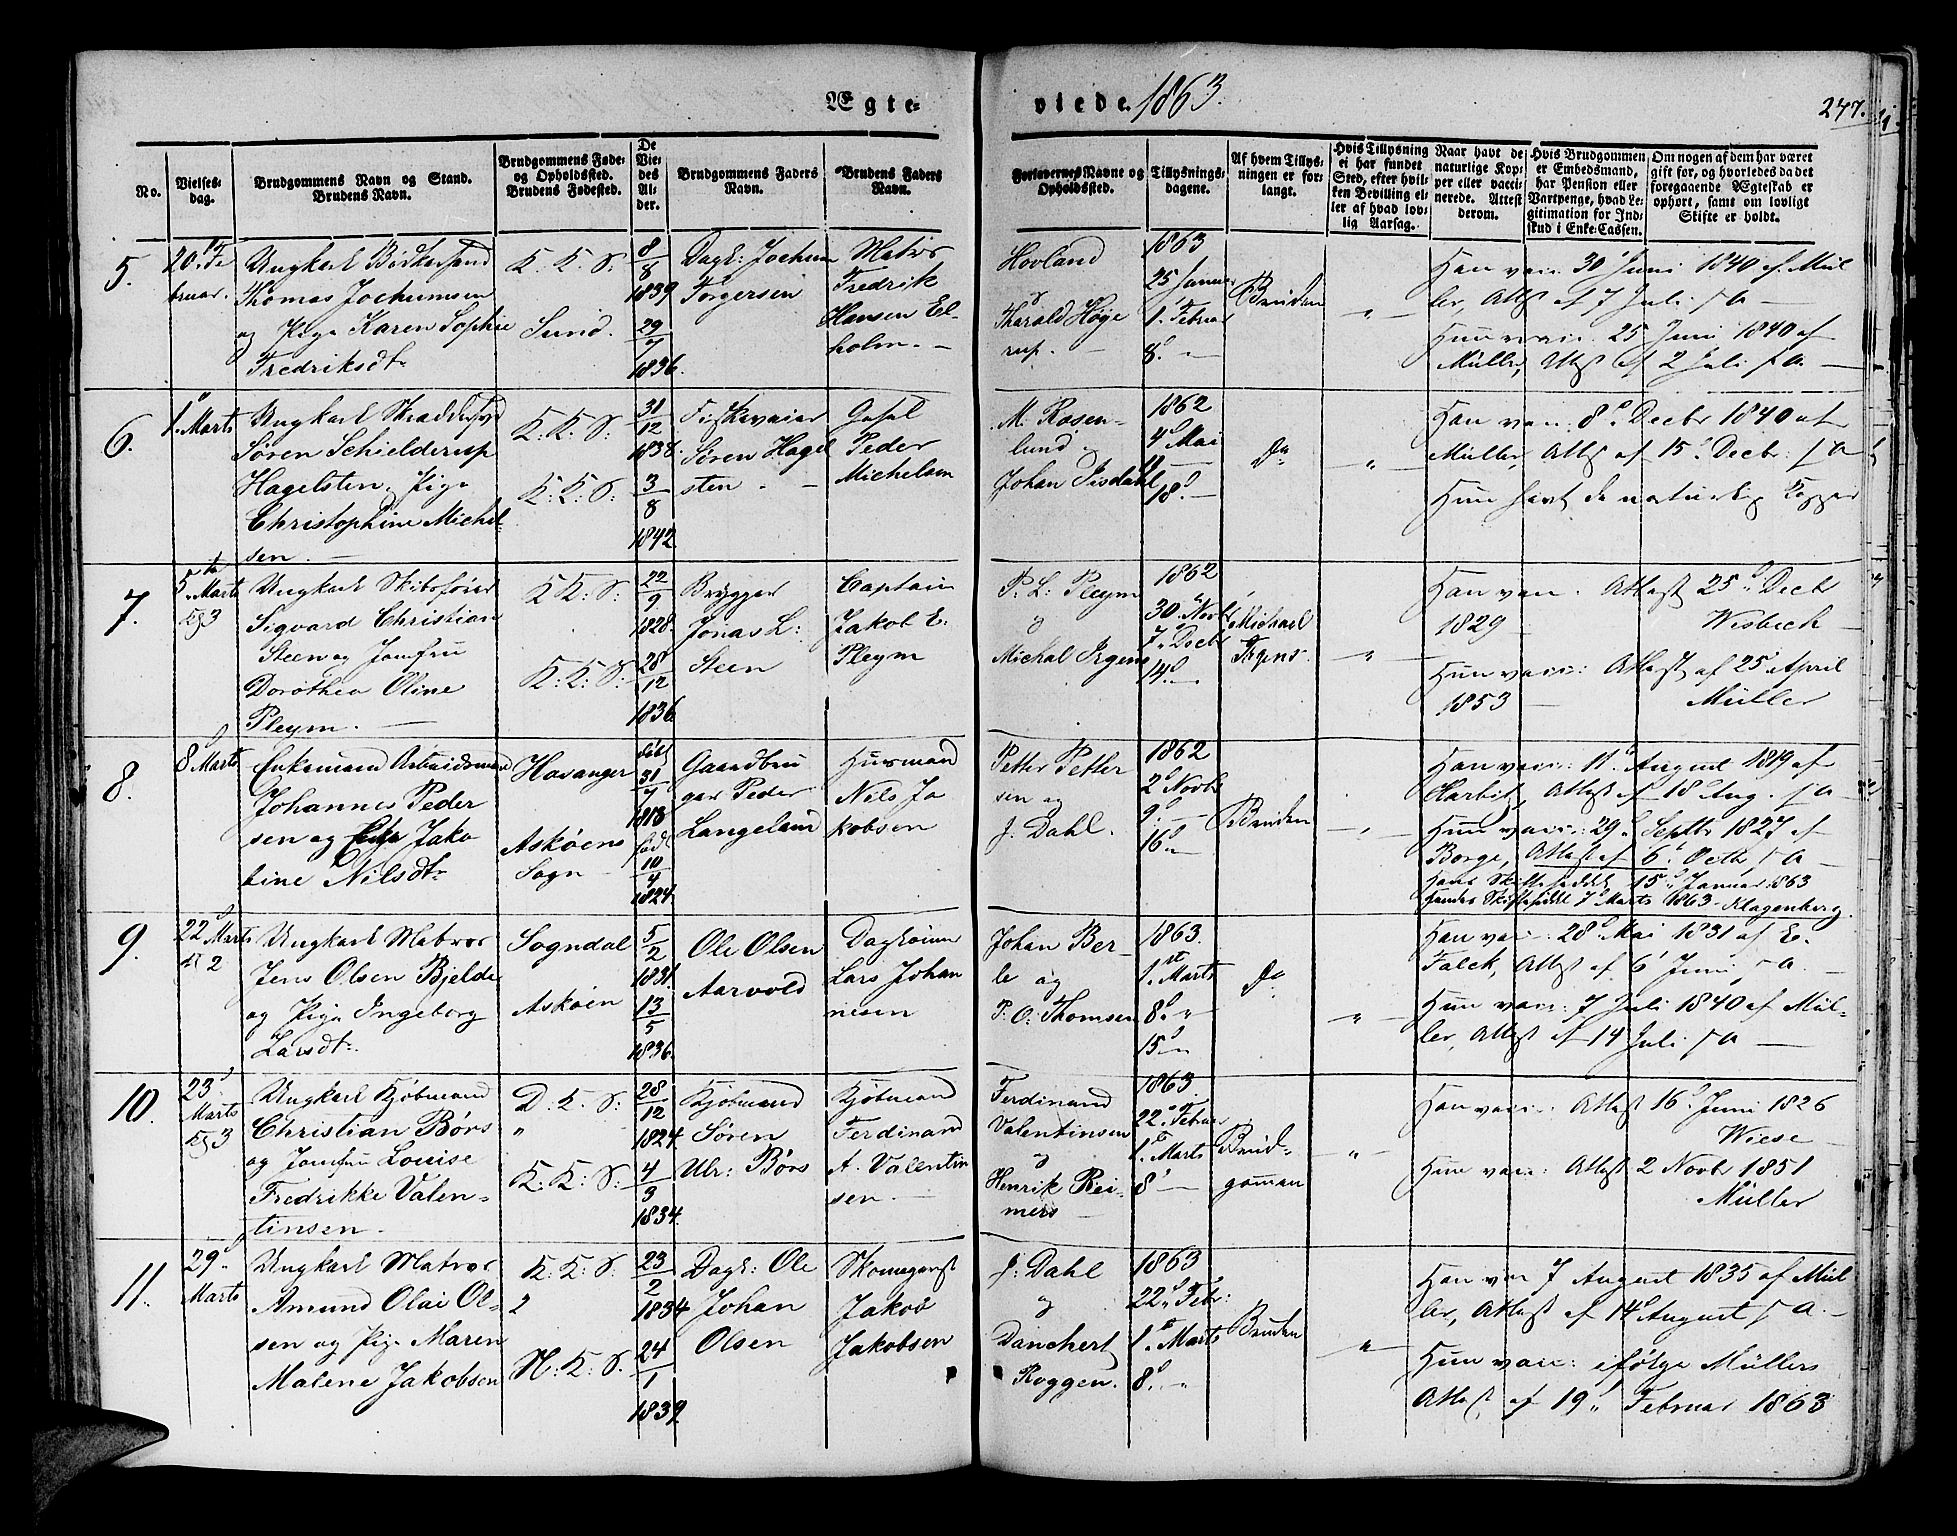 Ægte-
viede. 1863.
247.
No.
Vielses-
dag.
Brudgommens Navn og Stand.
Brudens Navn.
Brudgommens Føde-
og Opholdssted.
Brudens Fødested.
De
Vie-
des
Al-
der.
Brudgommens Faders
Navn.
Brudens Faders
Navn.
Forlovernes Navne og
Opholdssted.
Tillysnings-
dagene.
Af hvem Tillys-
ningen er for-
langt.
Hvis Tillysning
ei har fundet
Sted, efter hvil-
ken Bevilling el-
ler af hvad lov-
lig Aarsag.
Naar havt de
naturlige Kop-
per eller vacci-
nerede. Attest
derom.
Hvis Brudgommen
er Embedsmand,
har Pension eller
Vartpenge, hvad Le-
gitimation for Ind-
skud i Enke-Cassen.
Om nogen af dem har været
gift før, og hvorledes da det
foregaaende Ægteskab er
ophørt, samt om lovligt
Skifte er holdt.
5.
20. Fe
bruar.
Ungkarl Bødkersvend
Thomas Jochumsen
og Pige Karen Sophie
Fredriksdtr
K: K: S:
Sund.
8/8
1839
29/7
1836.
Dagk: Jochum
Torgersen
Matrs
Fredrik
Hansen El-
holm. -
Hovland
og
Tharald Høge
rup. -
1863
25 Januar
1. Februar
8. -
Bruden
"
Han vacc. 30 Juni 1840 af Mül
ler, Attest af 7 Juli s A -
Hun vacc. 25 Juni 1840 af
Müller, Attest af 2 Juli s A. -
6.
1. Marts
Ungkarl Skræddersvd
Søren Schielderup
Hagelsten, Pige
Christophine Michel-
sen. -
K: K: S:
K: K: S:
31/12
1838.
3/8
1842
Fiskevraier
Søren Hagel
sten. -
Gesel
Peder
Michelsen
M. Rosen-
lund
Johan Fisdahl
1862
4 Mai
11 -
18. -
Do
"
Han vacc. 8. Decbr 1840 af
Müller, Attest af 15. Decbr: s A
Hun havt de naturlig Kopper
7.
5 Marts
Kg 3
Ungkarl Skibsfører
Sigvard Christian
Steen og Jomfru
Dorothea Oline
Pleym. -
K K: S:
K: K: S:
22/9
1828.
28/12
1836
Brygger
Jonas L:
Steen
Captain
Jakob E.
Pleym
P. L. Pleym
og
Michal Irgens
1862
30. Novbr
7. Decbr
14. -
Michael
Irgens.
"
Han vacc. Attest 25 Decbr
1829 - Wisbech -
Hun vacc: Attest af 25 April
1853 - Müller
8.
8 Marts
Enkemand Arbeidsmand
Johannes Peder
sen og Enke Jako
bine Nilsdtr
Hosanger
Askøens
Sogn
født
31/7
1818
født
10/4
1824
Gaardbru
ger Peder
Langeland
Huusmand
Nils Ja
kobsen
Petter Petter
sen og
J. Dahl.
1862
2 Novbr
9. -
16. -
Bruden
"
Han vacc: 11 August 1819 af
Harbitz, Attest af 18 Aug. s A -
Hun vacc: 29 Septbr 1827 af
Borge, Attest af 6 Octbr s A -
Hans Skifteseddel 15 Januar 1863
Hendes Skifteseddl 7 Marts 1863 Klagenberg.
9.
22 Marts
Kl 2
Ungkarl Matros
Jens Olsen Bjelde
og Pige Ingeborg
Larsdtr.
Sogndal
Askøen
5/2
1831.
13/5
1836.
Ole Olsen
Aarvold
Dagkører
Lars Johan
nesen
Johan Ber-
le og
P. O: Thomsen
1863.
1. Marts
8. "
15. "
Do
"
Han vacc: 28 Mai 1831 af E.
Falck, Attest af 6 Juni s A. -
Hun vacc: 7 Juli 1840 af Mül-
ler, Attest af 14 Juli s A -
10.
23
Marts
Kg 3
Ungkarl Kjøbmand
Christian Børs
og Jomfru Louise
Fredrikke Valen-
tinsen. -
D. K. S:
"
K: K: S:
28/12
1824
4/3
1834
Kjøbmand
Søren
Ulr: Børs
Kjøbmand
Ferdinand
A. Valentin
sen. -
Ferdinand
Valentinsen
og
Henrik Rei-
mers
1863
22. Februar
1. Marts
8 -
Brud-
gommen
"
Han vacc: Attest 16 Juni 1826
Wiese -
Hun vacc: Attest 2 Novbr 1851
Müller
11.
29.
Marts
Ungkarl Matros
Amund Olai Ol-
sen og Pige Maren
Malene Jakobsen
K: K: S:
2
N: K: S.
23/2
1834
24/1
1839
Dagk: Ole
Johan
Olsen
Skomagerst
Jakob
Jakobsen
J: Dahl
og
Danchert
Roggen.
1863
22. Febr:
1. Marts
8. "
Bruden
"
Han vac 7 August 1835 af Mül
ler, Attest af 14 August s A. -
Hun vacc: ifølge Müllers
Attest af 19 Februar 1863